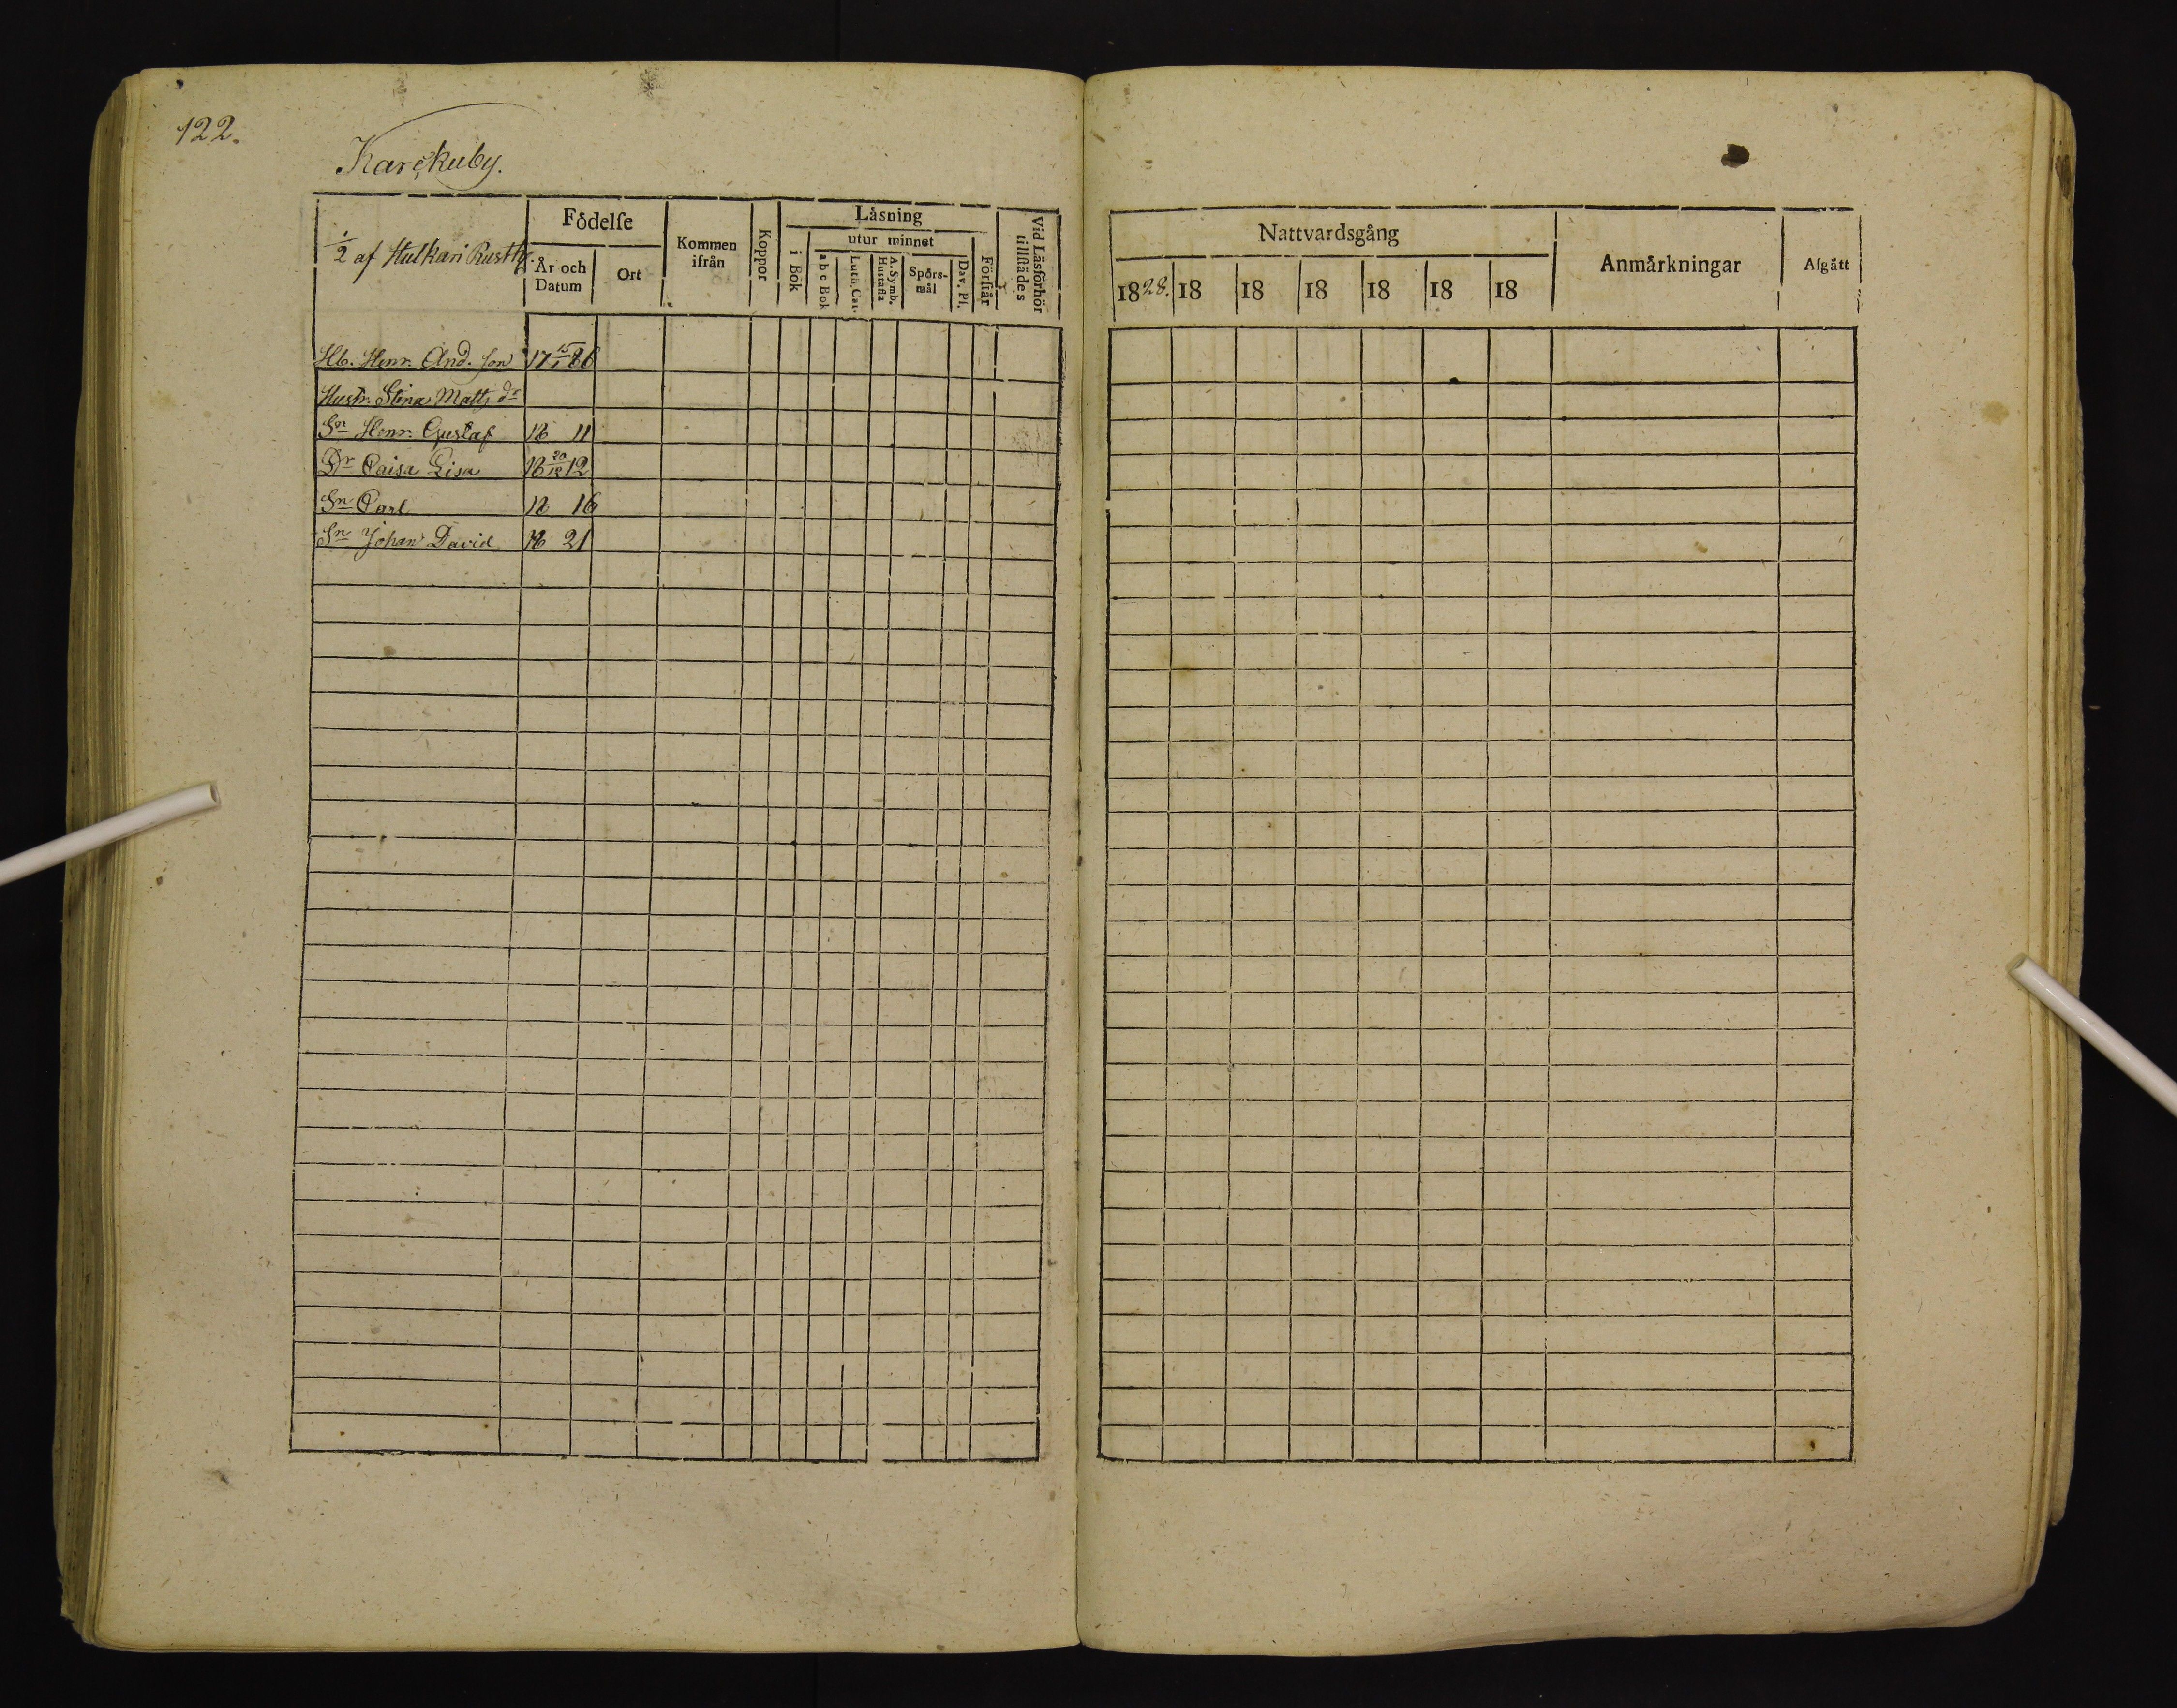 122.
Karskuby.
1/2 af Hulkari Rusth.
Födelse
År och Datum
Ort
Kommen ifrån
Koppor
Läsning
i Bok
utur minnet
a b c Bok
Luth. Cat.
A. Symb. Hustafla
Spörs-mål
Dav. Ps.
Förstår
Vid Läsförhör tillstädes
Hb. Henr. And. son 17 15/1 86
Hustr. Stina Matts dr
Sn Henr. Gustaf 18 11
Dr Caisa Lisa 18 20/12 12
Sn Carl 18 16
Sn Johan David 18 21
Nattvardsgång
1828. 18 18 18 18 18 18
Anmärkningar
Afgått